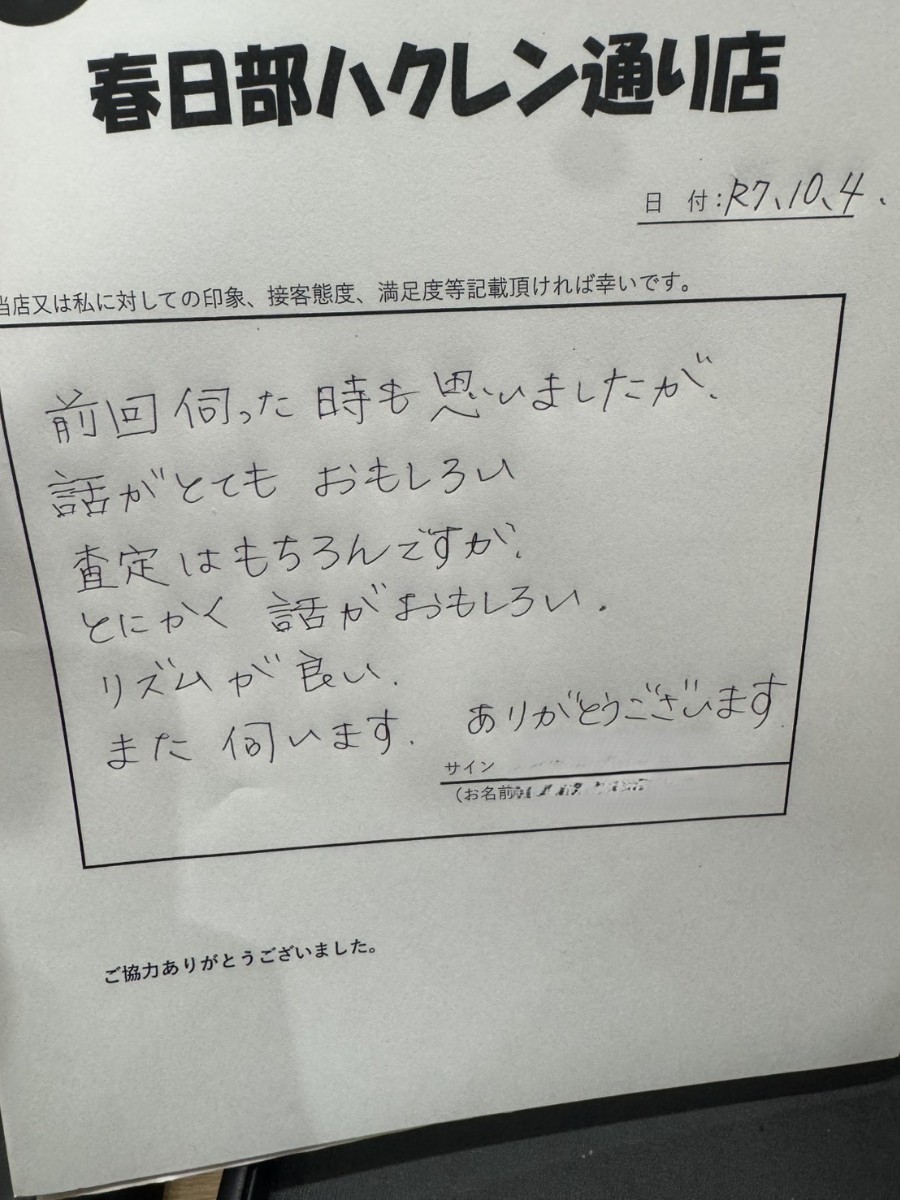 春日部ハクレン通り店
日 付：R7、10、4、
当店又は私に対しての印象、接客態度、満足度等記載頂ければ幸いです。
前回 伺った 時も 思いましたが、
話がとても おもしろい
査定はもちろんですが、
とにかく 話がおもしろい。
リズムが 良い。
また 伺います。 ありがとうございます
サイン
（お名前
ご協力ありがとうございました。